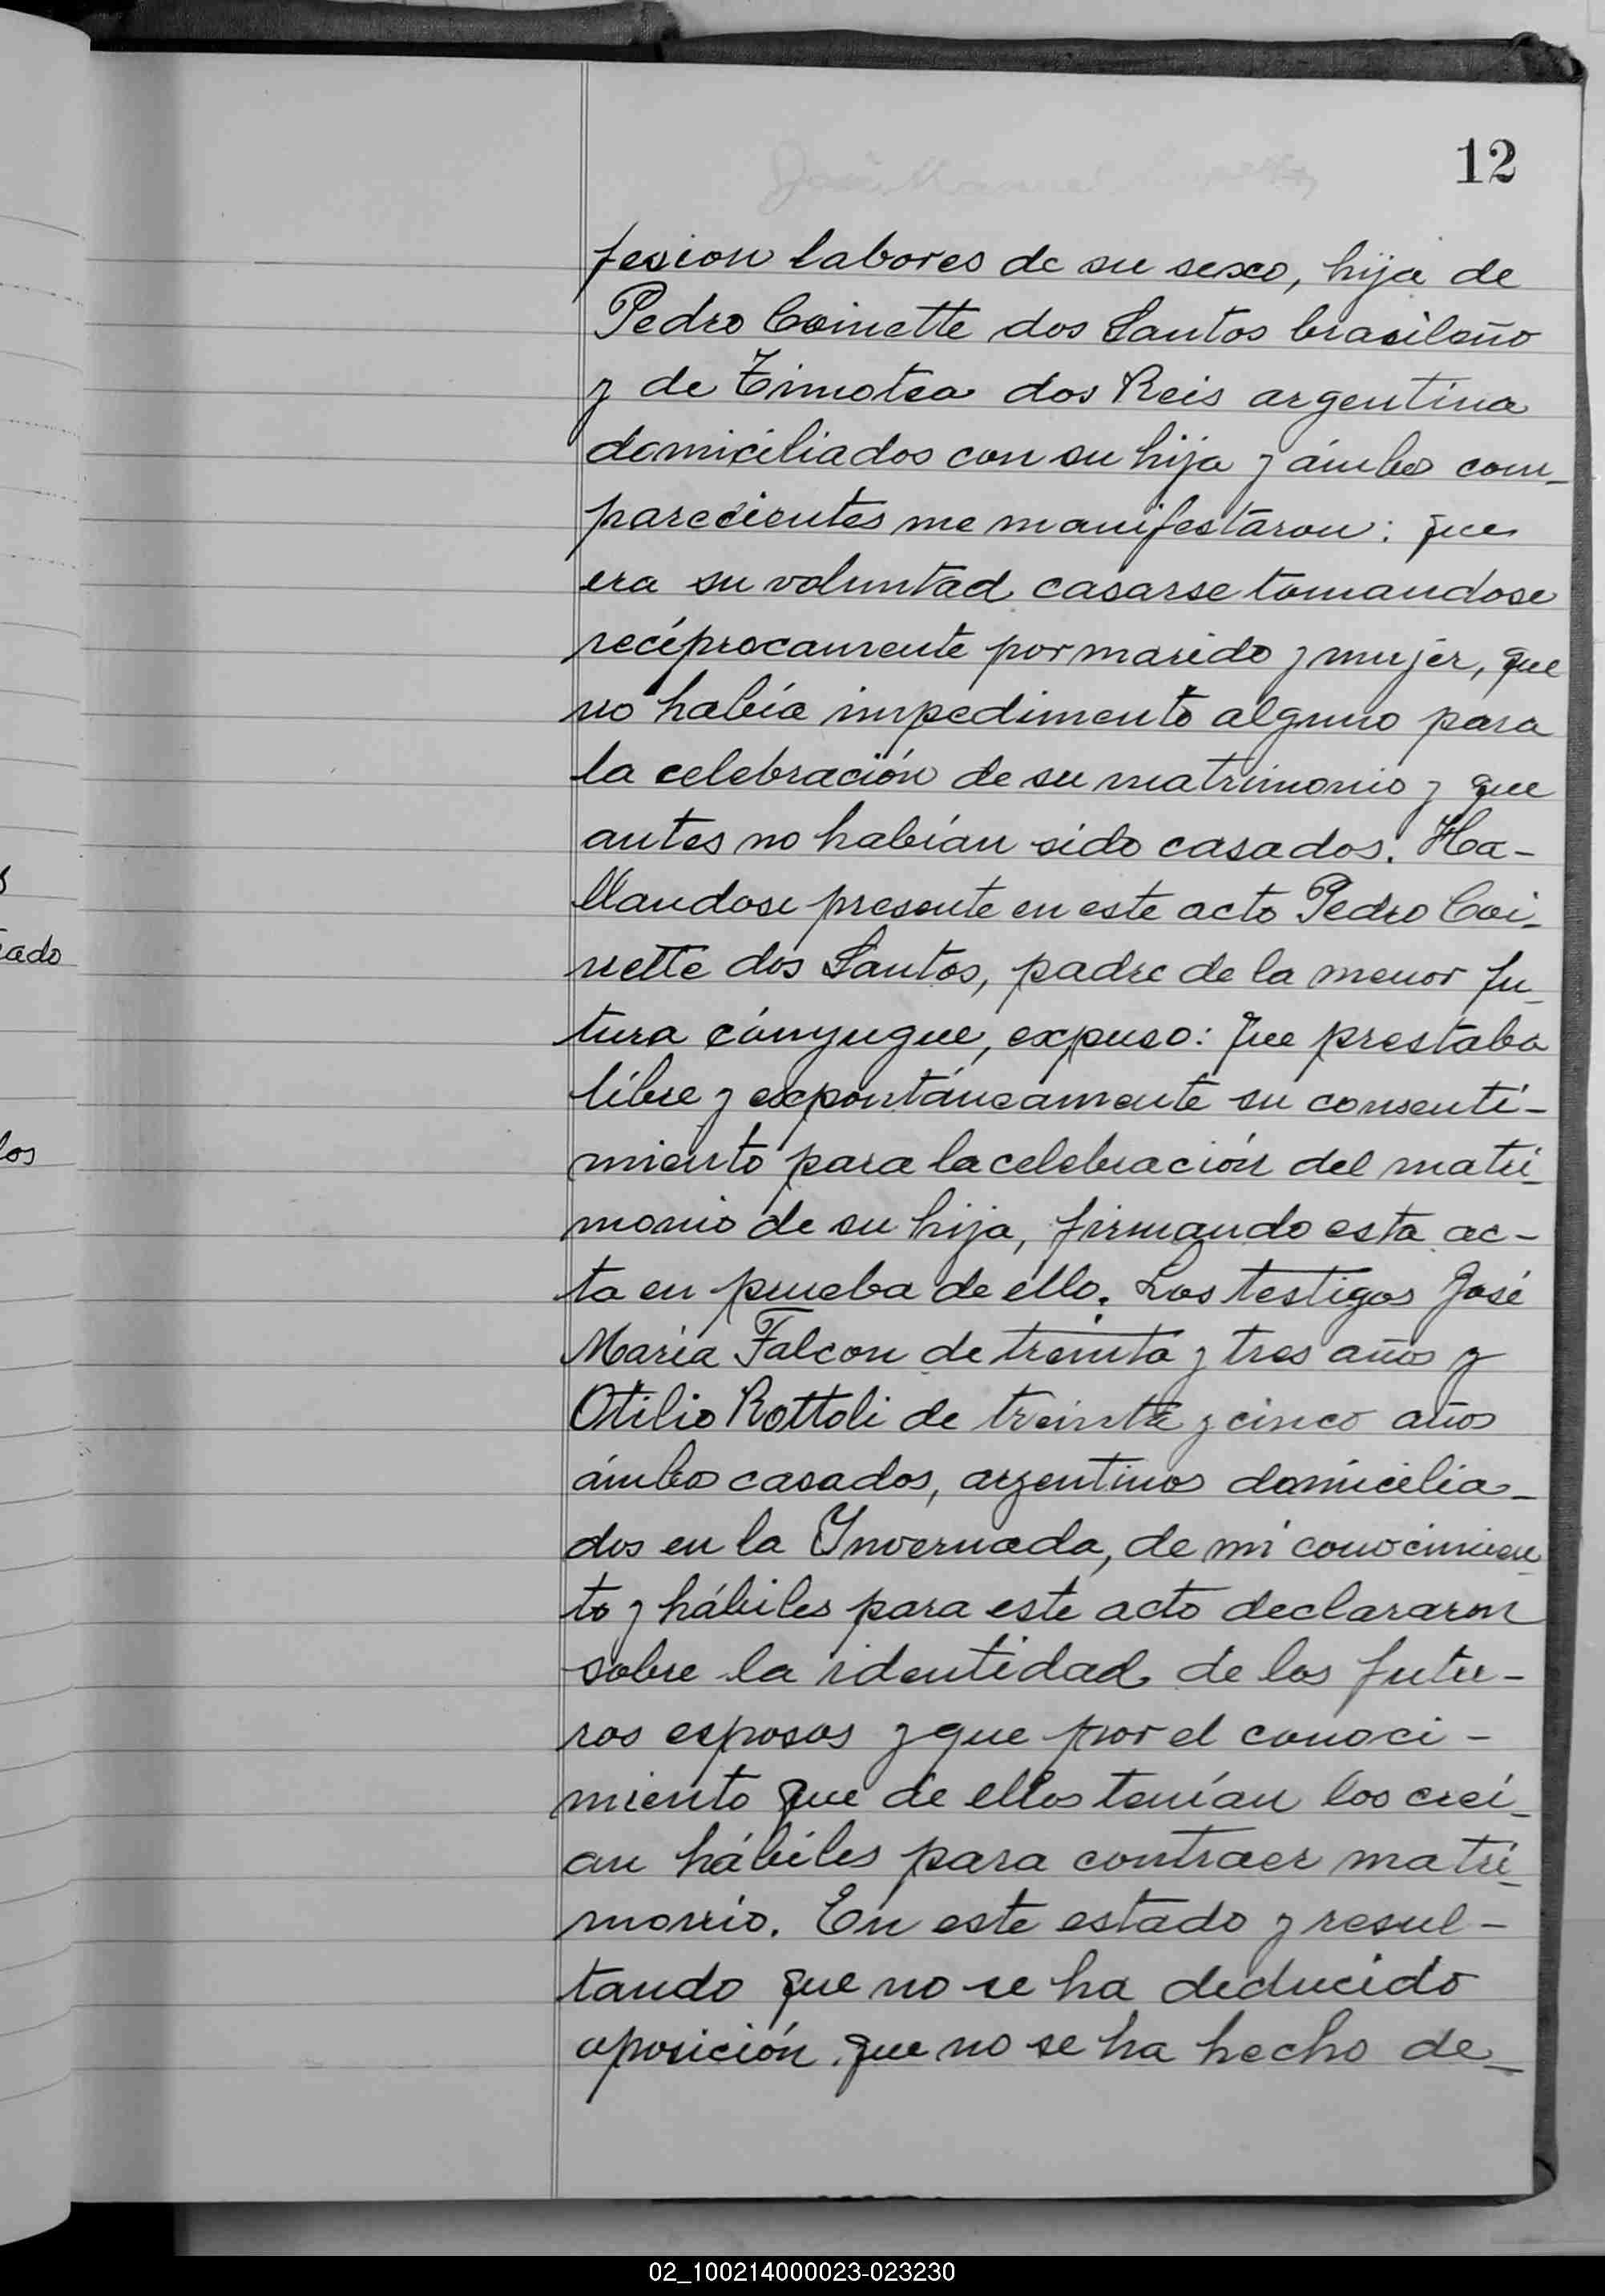 12
fesion labores de su sexo, hija de
Pedro Coinette dos Santos brasileño
y de Timotea dos Reis argentina
domiciliados con su hija y ámbos com_
parecientes me manifestaron: que
era su voluntad casarse tomandose
recíprocamente por marido y mujer, que
no había impedimento alguno para
la celebración de su matrimonio y que
antes no habían sido casados. Ha-
llandose presente en este acto Pedro Coi_
nette dos Santos, padre de la menor fu_
tura cónyugue, expuso: que prestaba
libre y expontáneamente su consenti-
miento para la celebración del matri_
monio de su hija, firmando esta ac-
ta en prueba de ello. Los testigos José
María Falcon de treinta y tres años y
Otilio Rottoli de treinta y cinco años
ámbos casados, argentinos domicilia_
dos en la Invernada, de mi conocimien_
to y hábiles para este acto declararon
sobre la identidad de los futu-
ros esposos y que por el conoci-
miento que de ellos tenían los creí_
an hábiles para contraer matri_
monio. En este estado y resul-
tando que no se ha deducido
oposición, que no se ha hecho de_
ado
los
02_100214000023-023230